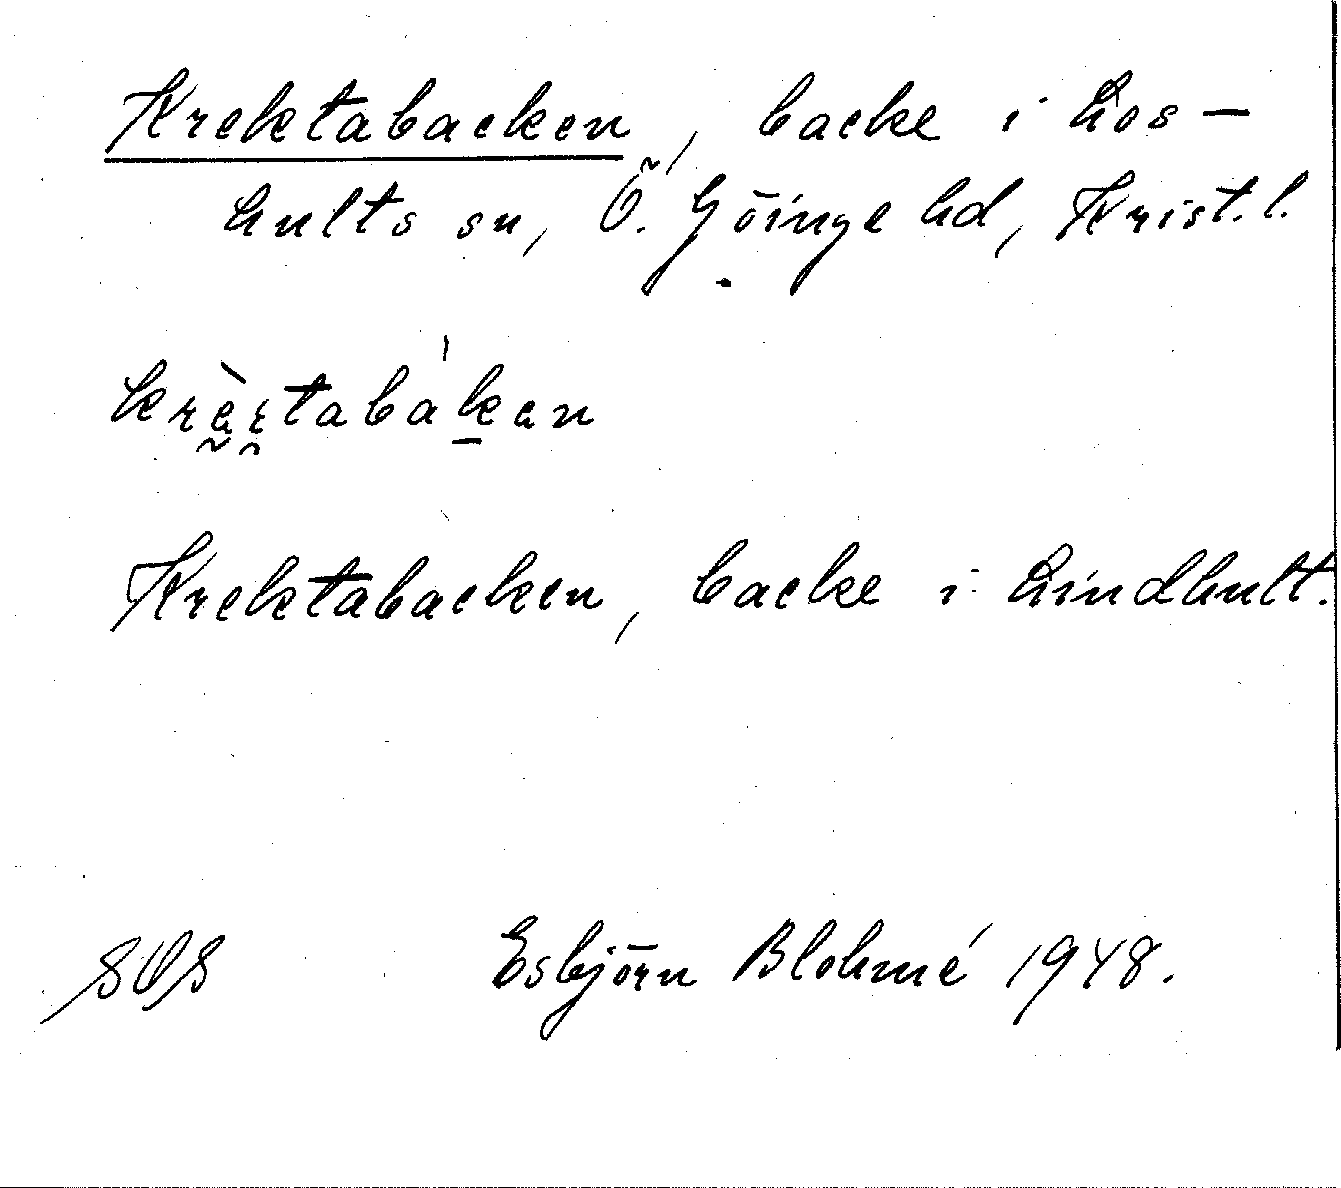 Krektabacken, backe i Los-
hults sn, Ö. Göinge hd, Krist. l.
Krektabacken, backe i Lindhult.
SOS Esbjörn Blohmé 1948.